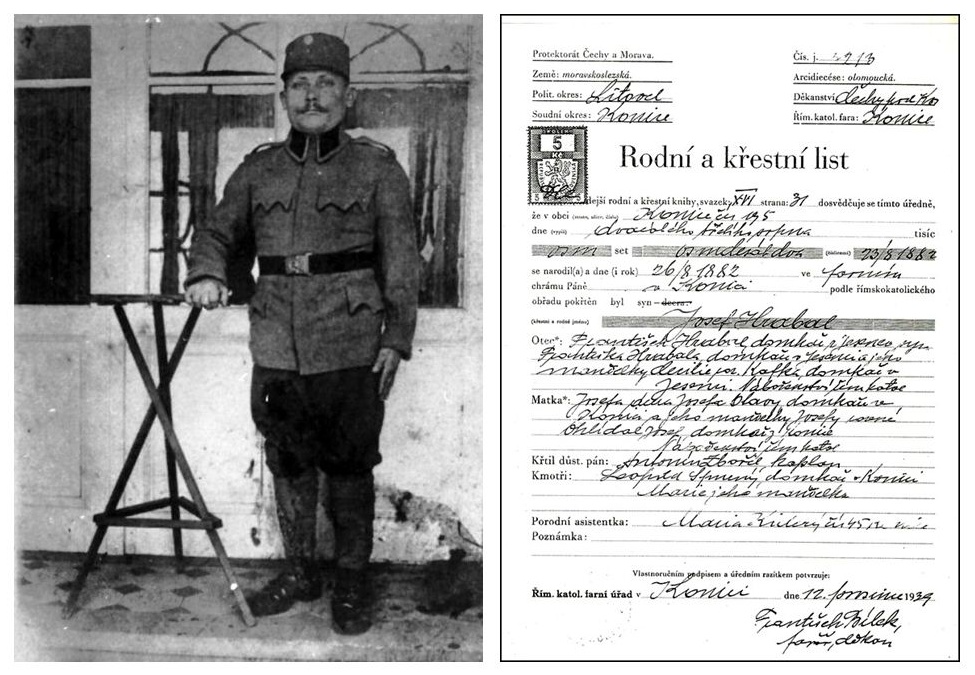 Protektorát Čechy a Morava.
Čís. j.
Země: moravskoslezská.
Arcidiecése: olomoucká.
Polit. okres: Litovel
Děkanství Čechy pod Kos
Soudní okres: Konice
Řím. katol. fara: Konice
5
Kč
Rodní a křestní list
dejší rodní a křestní knihy, svazek XVI strana: 31 dosvědčuje se tímto úředně,
že v obci Konice čís 195
dne dvacátého třetího srpna tisíc
osm set osmdesát dva 23/8 1882
se narodil(a) a dne (i rok) 26/8 1882 ve farním
chrámu Páně v Konici podle římskokatolického
obřadu pokřtěn byl syn — dcera:
(křestní a rodné jméno) Josef Hrabal
Otec*: František Hrabal domkář v Jesenci, syn
Františka Hrabala, domkáře v Jesenci a jeho
manželky Cecilie roz. Kafka domkáře v
Jesenci. Náboženství řím katol
Matka*: Josefa dcera Josefa Blavy domkáře v
Konici a jeho manželky Josefy rozené
Ohlídal Josef, domkář, Konice
Náboženství řím katol
Křtil důst. pán: Antonín Zbořil kaplan
Kmotři: Leopold domkář v Konici
Marie jeho manželka
Porodní asistentka: Maria čís 45
Poznámka:
Vlastnoručním podpisem a úředním razítkem potvrzuje:
Řím. katol. farní úřad v Konici dne 12. prosince 1939
František Bílek,
farář, děkan